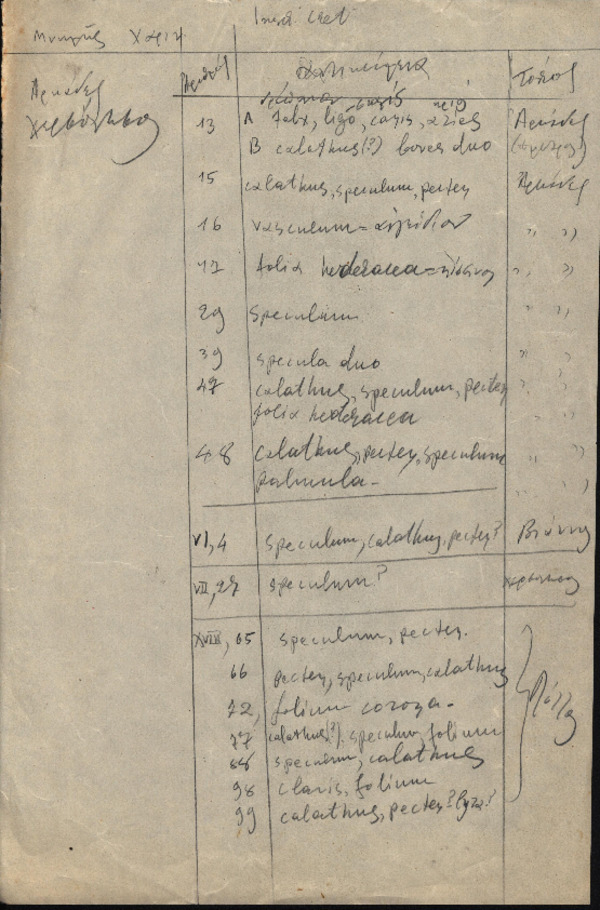 Inscr Cret
Μνήμης Χάριν
Ἀριθμός
Τόπος
Ἀρκάδες
Χερσόνησο
13 A falx, ligo,
Ἀρκάδες
B calathus(?) boves duo
15 calathus, speculum, pecten
Ἀρκάδες
16 vasculum =
" "
17 folia hederacea =
" "
29 speculum
" "
39 specula duo
" "
47 calathus, speculum, pecten
" "
folia hederacea
" "
48 calathus, pecten, speculum
" "
palmula -
" "
VI, 4 speculum, calathus, pecten?
Βιάννος
VII, 27 speculum?
Χερσόνησος
XVIII, 65 speculum, pecten.
66 pecten, speculum, calathus
72, folium corona -
77 calathus(?), speculum, folium
88 speculum, calathus
98 clavis, folium
99 calathus, pecten?